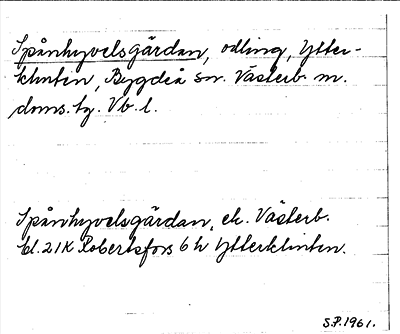 Spånhyvelsgärdan, odling, Ytter-
klinten, Bygdeå sn. Västerb. m.
doms.tg. Vb. l.
Spånhyvelsgärdan, ek. Västerb.
bl. 21K Robertsfors 6 h Ytterklinten.
S.P. 1961.